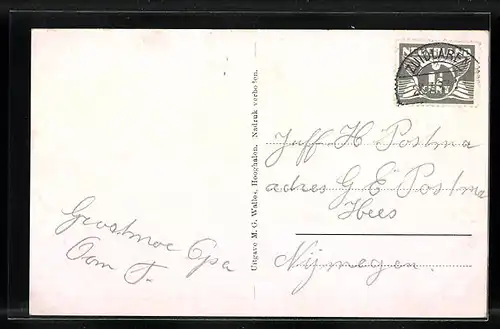 NEDERLAND
ZUIDLAREN
1½
CENT
Juff H Postma
adres G E Postma
Hees
Nijmegen.
Grootmoe Opa
Oom F.
Uitgave M. G. Walles, Hooghalen. Nadruk verboden.